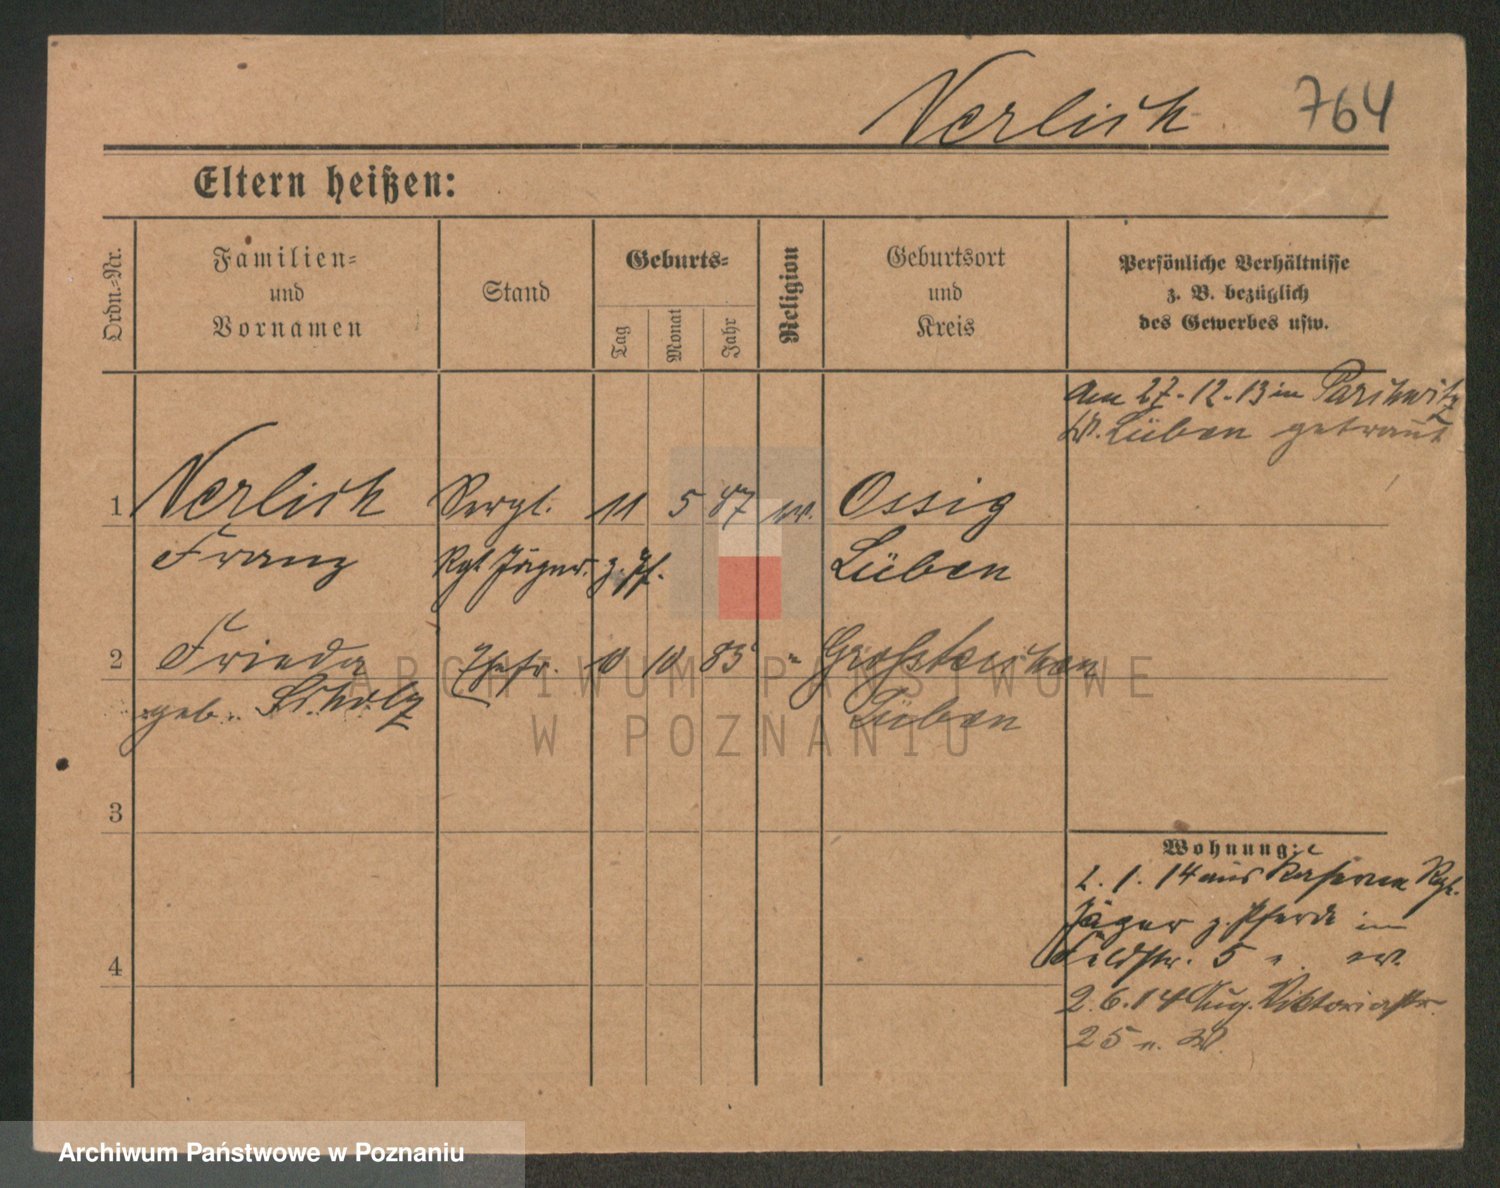 Verlich 764
Eltern heißen:
Ordn.-Nr.
Familien-
und
Vornamen
Stand
Geburts-
Tag
Monat
Jahr
Religion
Geburtsort
und
Kreis
Persönliche Verhältnisse
z. B. bezüglich
des Gewerbes usw.
am 27.12.13 in Parchwitz
Kr. Lüben getraut
1 Verlich Sergt. 11 5 87 ev. Ossig
Franz Rgt. Jäger z. Pf. Lüben
2 Frieda Ehefr. 10 10 83 " 
geb. Scholz Lüben
3
4
Wohnung:
2.1.14 aus Kaserne Rgt.
Jäger z. Pferde in
Feldstr. 5
2.6.14 Aug. Viktoriastr.
25
ARCHIWUM PAŃSTWOWE
W POZNANIU
Archiwum Państwowe w Poznaniu